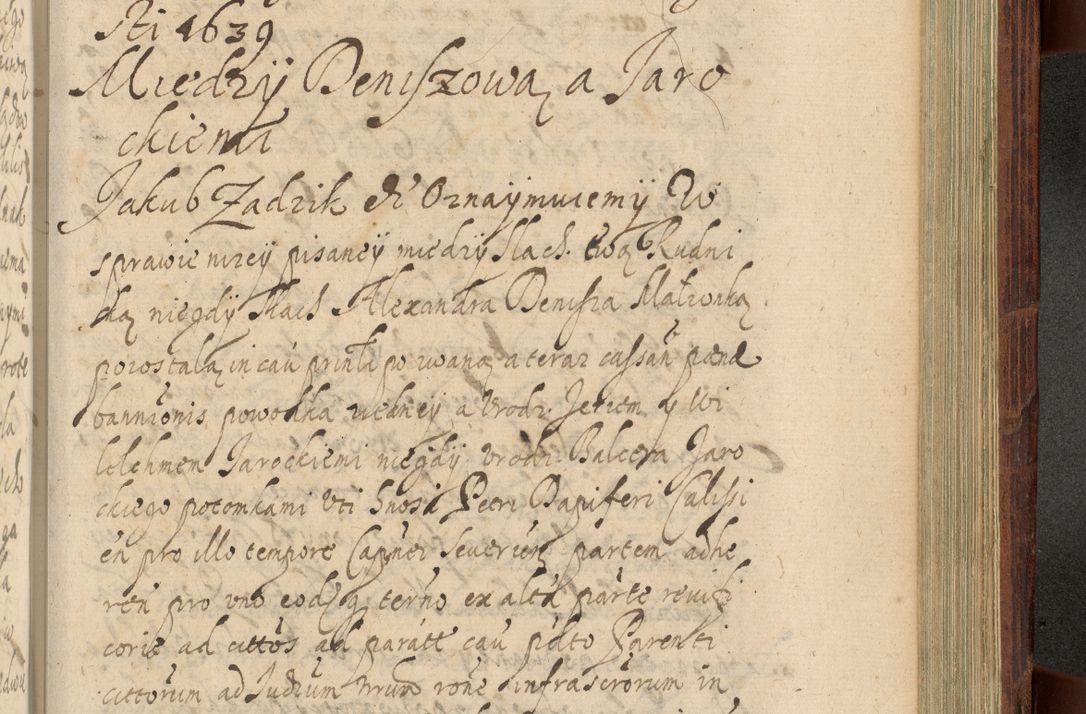 sti 1639
Miedzÿ Deniszową a Jaro
ckiemi
Jakub Zadzik etc Oznaÿmuiemÿ W
sprawie nizeÿ pisaneÿ miedzÿ Slach. Ewą Rudni
cką niegdÿ slach Alexandra Denisza Małzonką
pozostałą in cau printł powaną a teraz cussan pænæ
bannionis powodka ziedneÿ a Urodz. Jerzem y Wi
lelchmem Jarockiemi niegdÿ Urodz. Balcera Jaro
ckiego potomkami Uti Gnosi Petri Dapiferi Calissi
en pro illo tempore Capnei Severien partem adhe
ren pro uno eodq terno ex altera parte revisi
coris ad cittos ad paratt cau pdto Parenti
cittorum ad Judium nrum rone infrascrorum in